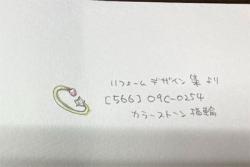 リフォーム デザイン 集 より
[566] 09C-0254
カラーストーン 指輪